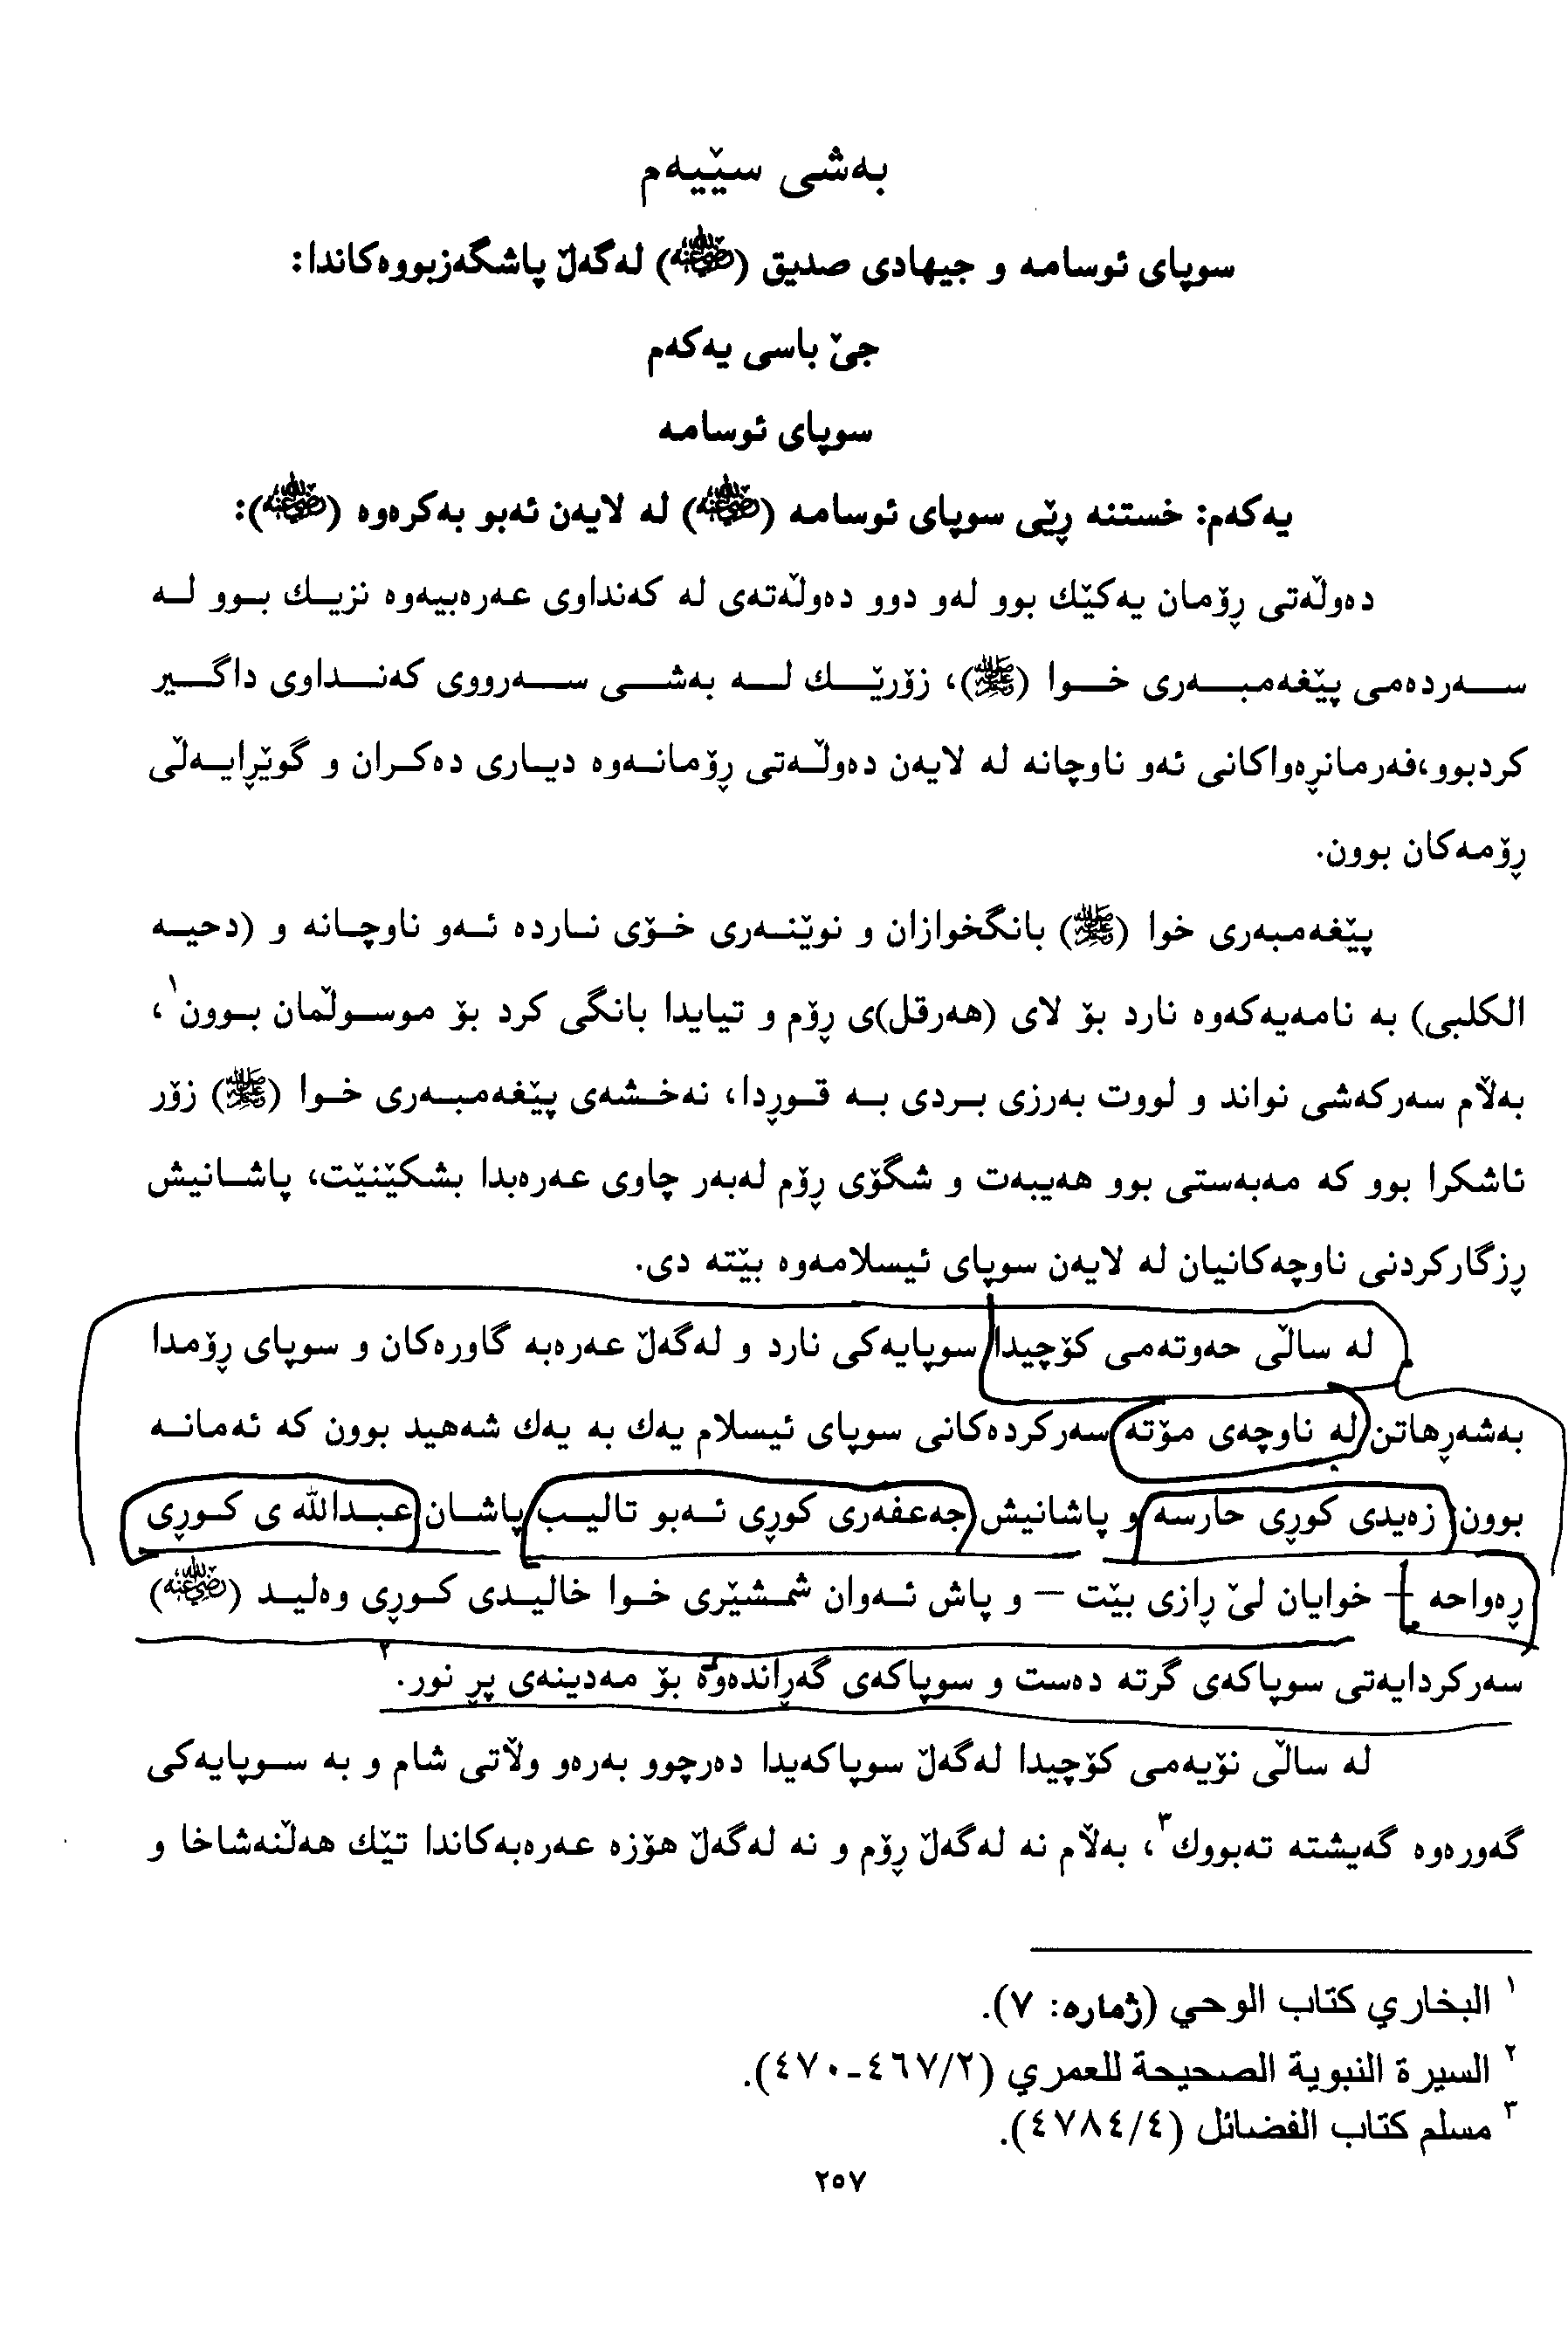 بەشی سێیەم
سوپای ئوسامە و جیهادی صدیق (رضي الله عنه) لەگەڵ پاشگەزبووەکاندا:
جێ باسی یەکەم
سوپای ئوسامە
یەکەم: خستنە ڕێی سوپای ئوسامە (رضي الله عنه) لە لایەن ئەبو بەکرەوە (رضي الله عنه):
دەوڵەتی ڕۆمان یەکێك بوو لەو دوو دەوڵەتەی لە کەنداوی عەرەبیەوە نزیـك بـوو لـە
سـەردەمی پێغەمبـەری خـوا (ﷺ)، زۆرێـك لـە بەشـی سـەرووی کەنـداوی داگـیر
کردبوو،فەرمانڕەواکانی ئەو ناوچانە لە لایەن دەوڵـەتی ڕۆمانـەوە دیـاری دەکـران و گوێڕایـەڵی
ڕۆمەکان بوون.
پێغەمبەری خوا (ﷺ) بانگخوازان و نوێنـەری خـۆی نـاردە ئـەو ناوچـانە و (دحیـە
الکلبی) بە نامەیەکەوە نارد بۆ لای (هەرقل)ی ڕۆم و تیایدا بانگی کرد بۆ موسـوڵمان بـوون١،
بەڵام سەرکەشی نواند و لووت بەرزی بـردی بـە قـوڕدا، نەخـشەی پێغەمبـەری خـوا (ﷺ) زۆر
ئاشکرا بوو کە مەبەستی بوو هەیبەت و شگۆی ڕۆم لەبەر چاوی عەرەبدا بشکێنێت، پاشـانیش
ڕزگارکردنی ناوچەکانیان لە لایەن سوپای ئیسلامەوە بێتە دی.
لە ساڵی حەوتەمی کۆچیدا سوپایەکی نارد و لەگەڵ عەرەبە گاورەکان و سوپای ڕۆمدا
بەشەڕهاتن لە ناوچەی مۆتە سەرکردەکانی سوپای ئیسلام یەك بە یەك شەهید بوون کە ئەمانـە
بوون زەیدی کوڕی حارسە و پاشانیش جەعفەری کوڕی ئـەبو تالیـب پاشـان عبـدالله ی کـوڕی
ڕەواحە – خوایان لێ ڕازی بێت – و پاش ئـەوان شمـشێری خـوا خالیـدی کـوڕی وەلیـد (رضي الله عنه)
سەرکردایەتی سوپاکەی گرتە دەست و سوپاکەی گەڕاندەوە بۆ مەدینەی پڕ نور.٢
لە ساڵی نۆیەمی کۆچیدا لەگەڵ سوپاکەیدا دەرچوو بەرەو وڵاتی شام و بە سـوپایەکی
گەورەوە گەیشتە تەبووك٣، بەڵام نە لەگەڵ ڕۆم و نە لەگەڵ هۆزە عەرەبەکاندا تێك هەڵنەشاخا و
١ البخاري كتاب الوحي (ژمارە: ٧).
٢ السيرة النبوية الصحيحة للعمري (٤٦٧/٢-٤٧٠).
٣ مسلم كتاب الفضائل (٤٧٨٤/٤).
٢٥٧